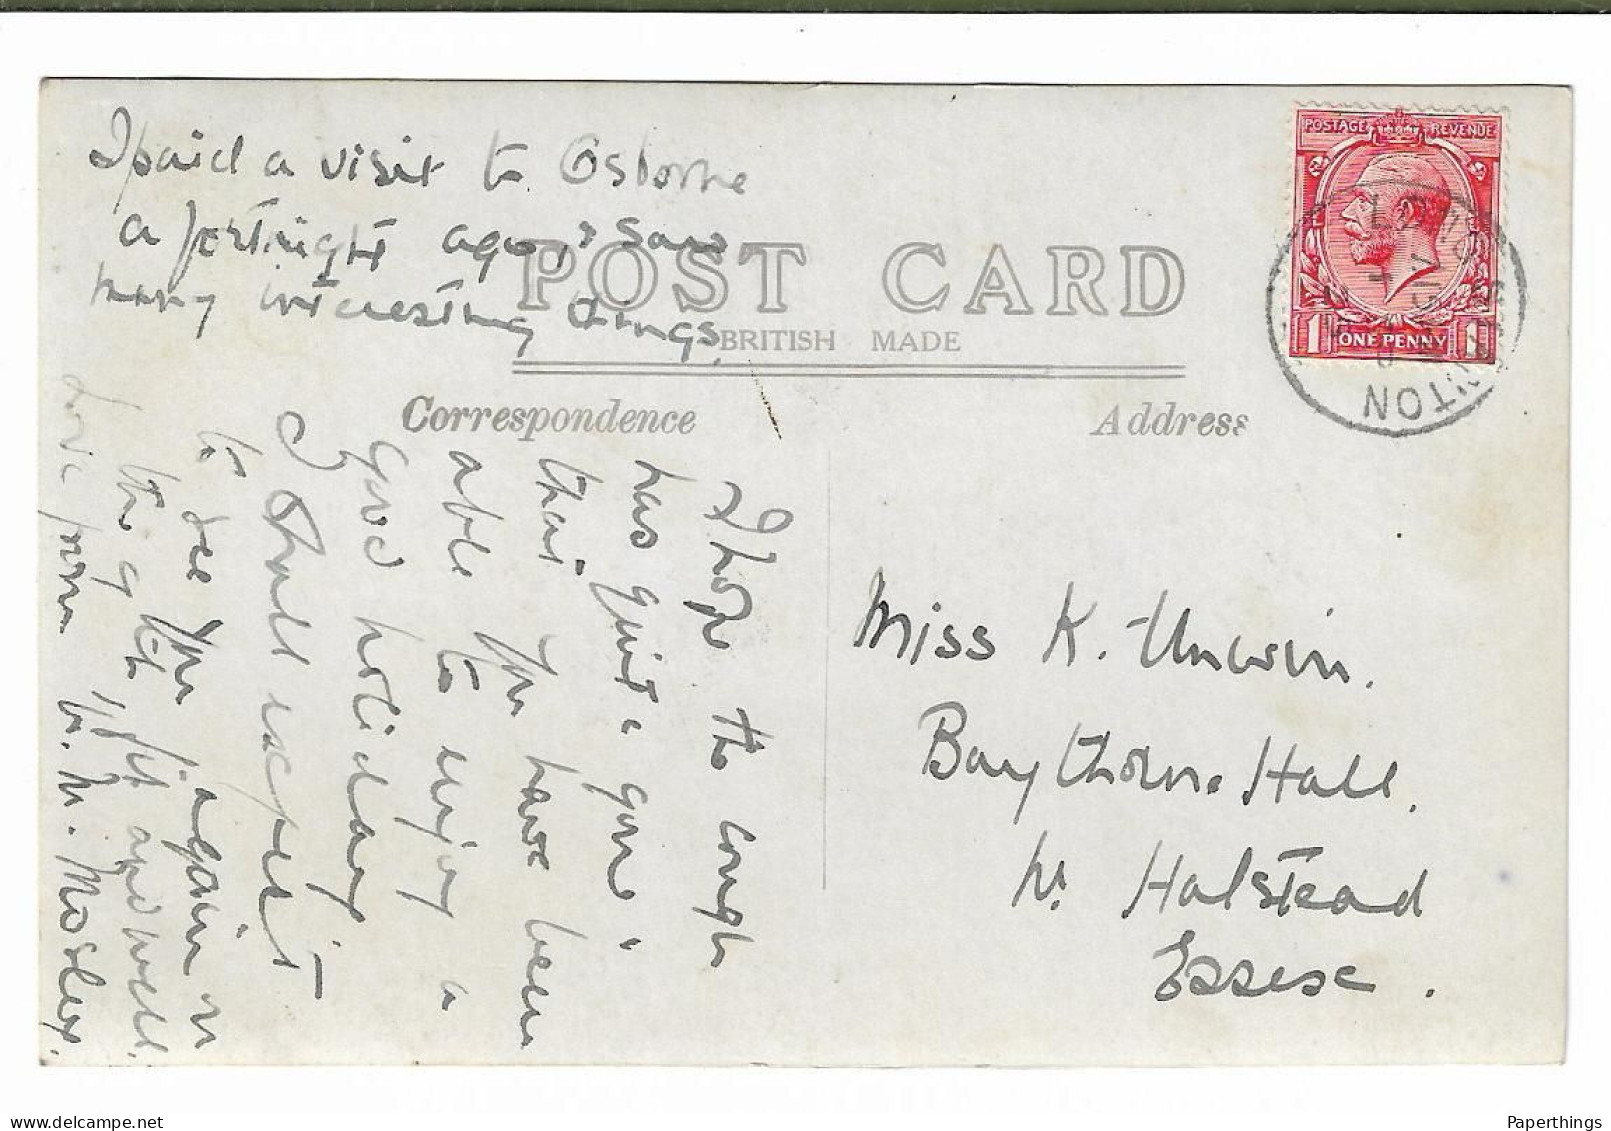 I paid a visit to Osborne
a fortnight ago, & saw
many interesting things.
POST CARD
BRITISH MADE
Correspondence
Address
I hope the cough
has quite gone &
that you have been
able to enjoy a
good holiday
I shall expect
to see you again on
the 9th fit and well.
Love from M. Mosley.
Miss K. Unwin.
Baythorne Hall.
Nr Halstead
Essex.
POSTAGE REVENUE
1 ONE PENNY 1
Paperthings